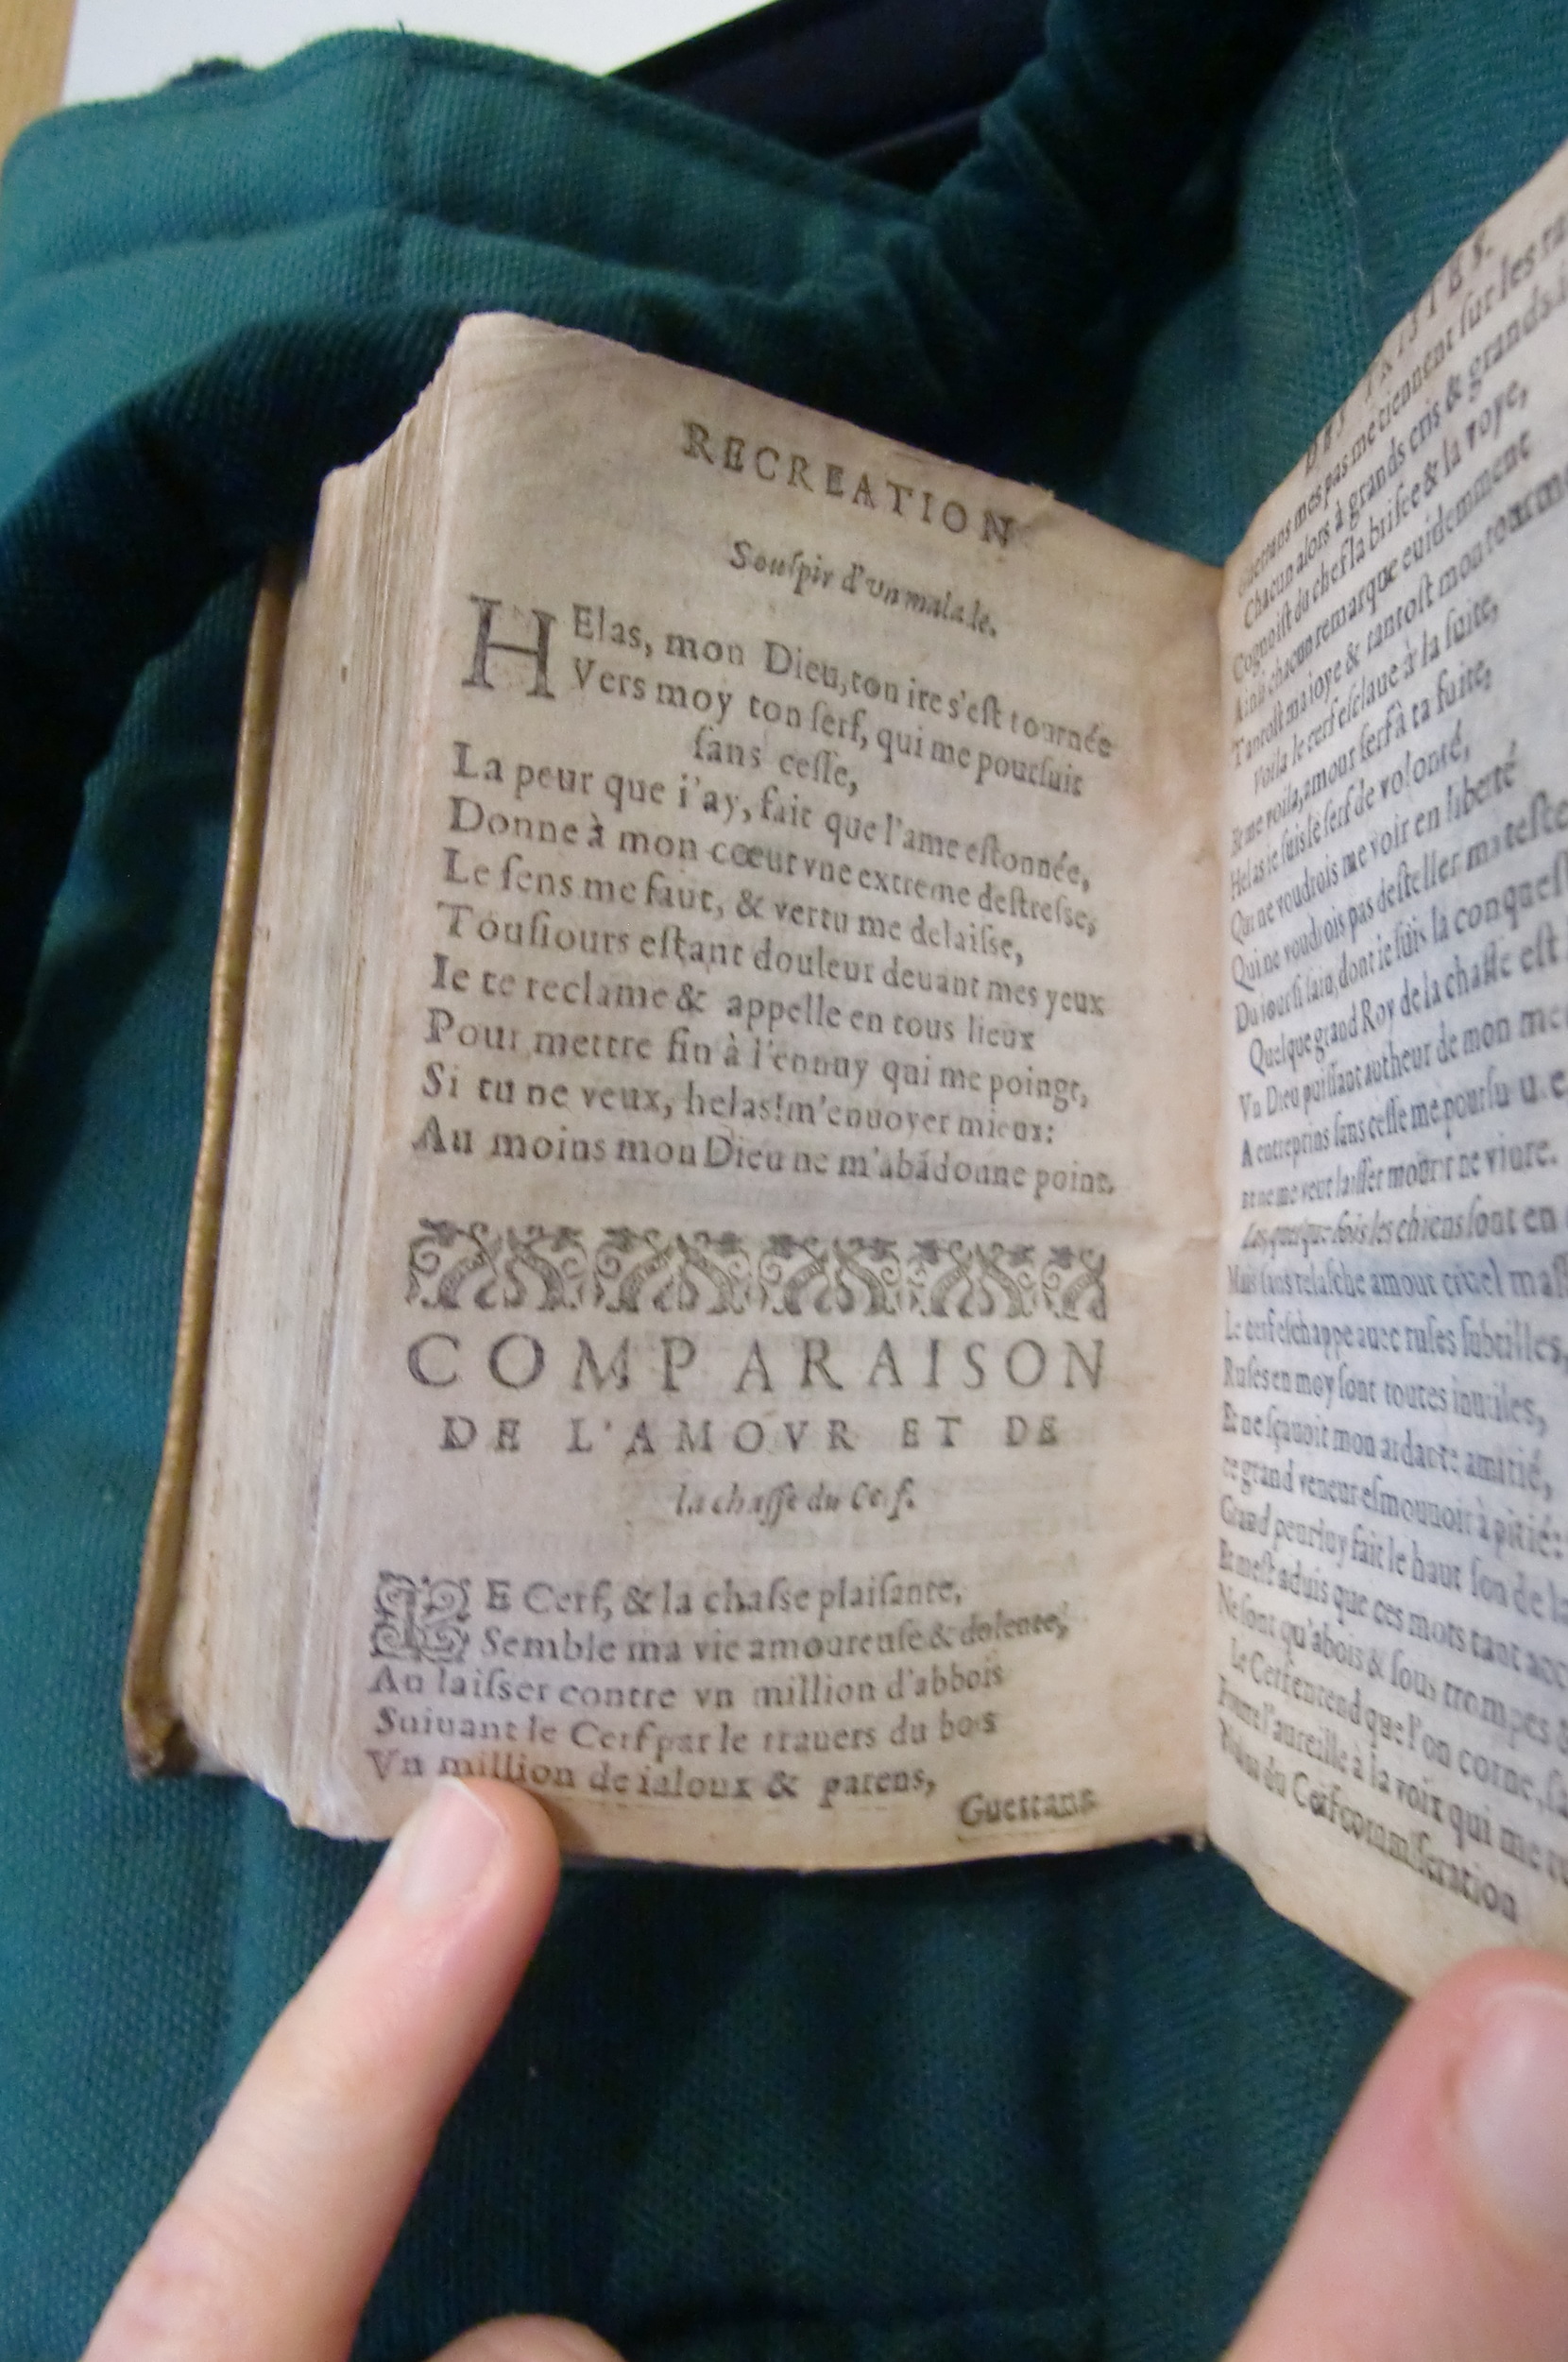 RECREATION
Souſpir d'vn malade.
HElas, mon Dieu, ton ire s'eſt tournée
Vers moy ton ſerf, qui me pourſuit
ſans ceſſe,
La peur que i'ay, fait que l'ame eſtonnée,
Donne à mon cœur vne extreme deſtreſse,
Le ſens me faut, & vertu me delaiſse,
Touſiours eſtant douleur deuant mes yeux
Ie te reclame & appelle en tous lieux
Pour mettre fin à l'ennuy qui me poingt,
Si tu ne veux, helas! m'enuoyer mieux:
Au moins mon Dieu ne m'abādonne point.
COMPARAISON
DE L'AMOVR ET DE
la chaſſe du Cerf.
LE Cerf, & la chaſse plaiſante,
Semble ma vie amoureuſe & dolente,
Au laiſser contre vn million d'abbois
Suiuant le Cerf par le trauers du bois
Vn million de ialoux & parens,
Guettans
DES TRISTES.
Guettans mes pas me tiennent ſur les
Chacun alors à grands cris & grands
Cognoiſt du chef la briſee & la voye,
Ainſi chacun remarque euidemment
Tantoſt ma ioye & tantoſt mon tourm
Voila le cerf eſclaue à la ſuite,
Et me voila, amour ſerf à ta ſuite,
Helas ie ſuis le ſerf de volonté,
Qui ne voudrois me voir en liberté
Qui ne voudrois pas deſteller ma teſte
Du iour ſi lain, dont ie ſuis la conqueſt
Quelque grand Roy de la chaſſe eſt
Vn Dieu puiſſant autheur de mon me
A entreprins ſans ceſſe me pourſuiue
Et ne me veut laiſſer mourir ne viure.
Las quelque-fois les chiens ſont en
Mais ſans relaſche amour cruel
Le cerf eſchappe auec ruſes ſubtilles,
Ruſes en moy ſont toutes inutiles,
Et ne ſçauoit mon ardante amitié,
ce grand veneur eſmouuoir à pitié:
Grand peur luy fait le haut ſon de
Et m'eſt aduis que ces mots tant
Ne ſont qu'abois & ſous trompes
Le Cerf entend que l'on corne,
l'aureille à la voix qui me
du Cerf commiſeration